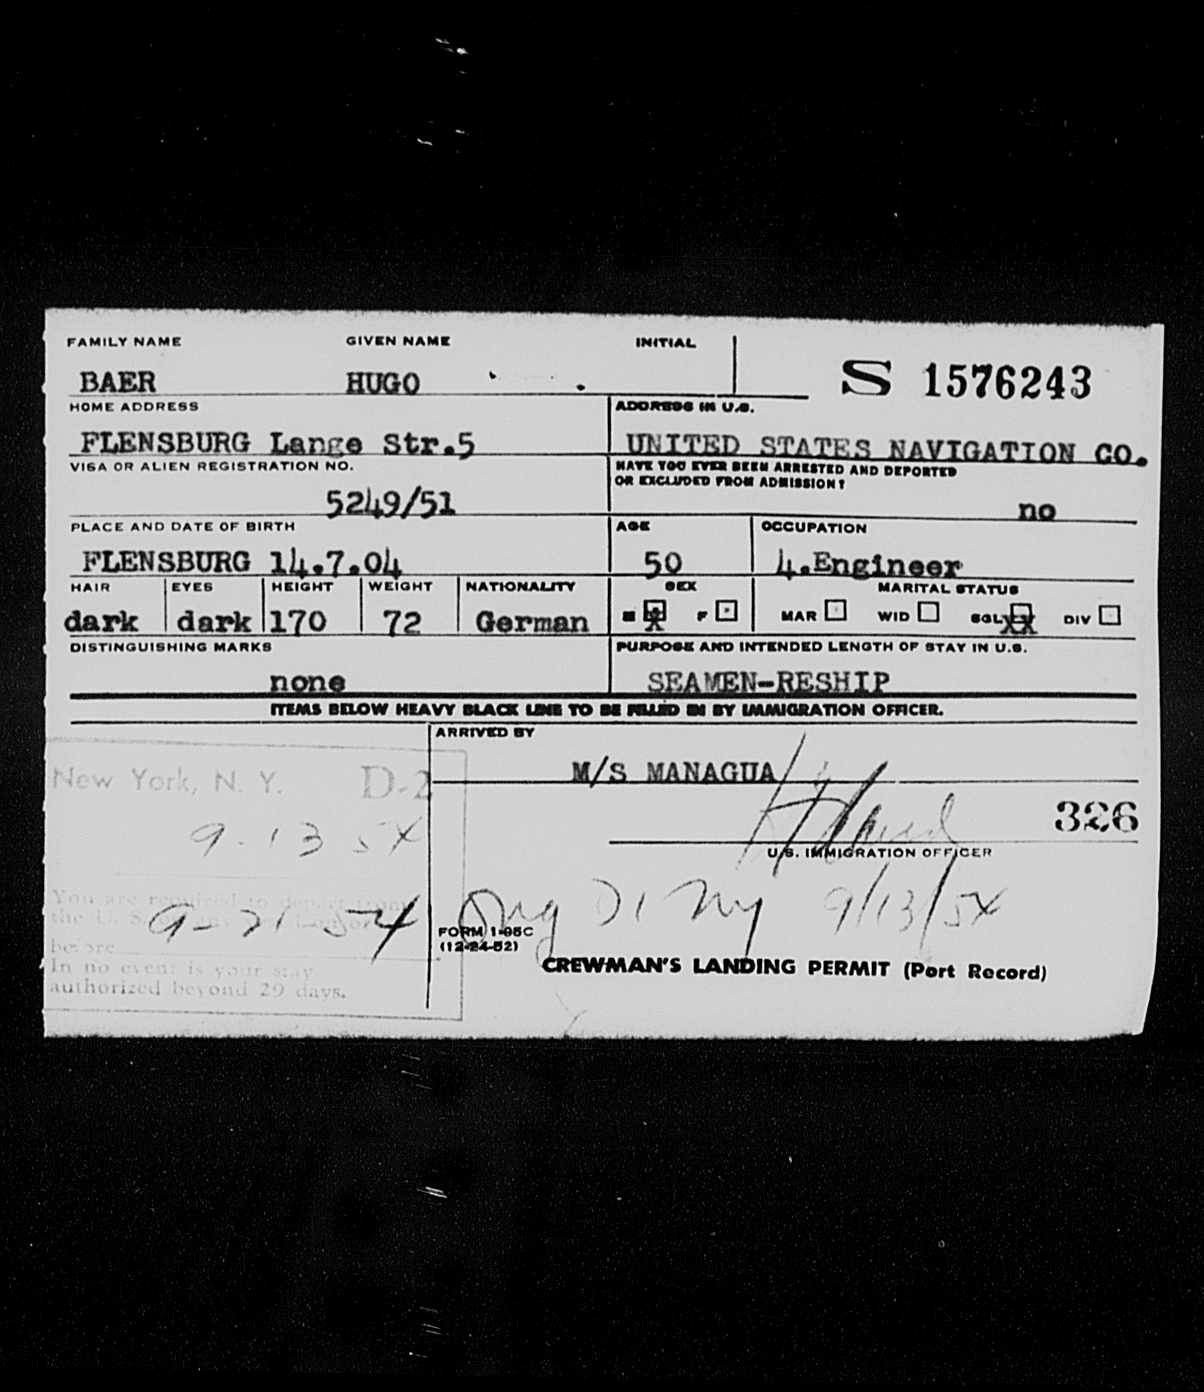 FAMILY NAME GIVEN NAME INITIAL
BAER HUGO S 1576243
HOME ADDRESS ADDRESS IN U.S.
FLENSBURG Lange Str.5 UNITED STATES NAVIGATION CO.
VISA OR ALIEN REGISTRATION NO. HAVE YOU EVER BEEN ARRESTED AND DEPORTED
OR EXCLUDED FROM ADMISSION?
5249/51 no
PLACE AND DATE OF BIRTH AGE OCCUPATION
FLENSBURG 14.7.04 50 4.Engineer
HAIR EYES HEIGHT WEIGHT NATIONALITY SEX MARITAL STATUS
dark dark 170 72 German M X F MAR WID SGL XX DIV
DISTINGUISHING MARKS PURPOSE AND INTENDED LENGTH OF STAY IN U.S.
none SEAMEN-RESHIP
ITEMS BELOW HEAVY BLACK LINE TO BE FILLED IN BY IMMIGRATION OFFICER.
ARRIVED BY
M/S MANAGUA
New York, N. Y. D-2
326
9-13 54
U.S. IMMIGRATION OFFICER
You are required to depart from
the U. S.
9-21-54 NY 9/13/54
before
FORM I-95C
(12-24-52)
In no event is your stay
authorized beyond 29 days.
CREWMAN'S LANDING PERMIT (Port Record)